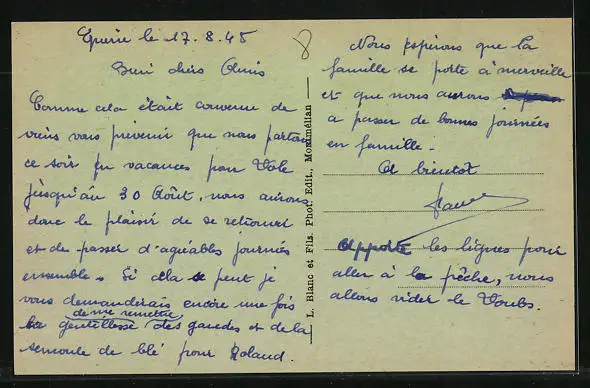 le 17.8.45
8
Bien chers Amis
Comme cela était convenu je
viens vous prévenir que nous partons
ce soir en vacances pour Dôle
jusqu'au 30 Août, nous aurons
donc le plaisir de se retrouver
et de passer d'agréables journées
ensemble. Si cela se peut je
vous demanderais encore une fois
de me remettre
la gentillesse des gaudes et de la
semoule de blé pour Roland.
L. Blanc et Fils. Phot. Edit., Montmélian
Nous espérons que la
famille se porte à merveille
et que nous aurons
a passer de bonnes journées
en famille.
A bientôt
Apporte les lignes pour
aller à la pêche, nous
allons vider le Doubs.